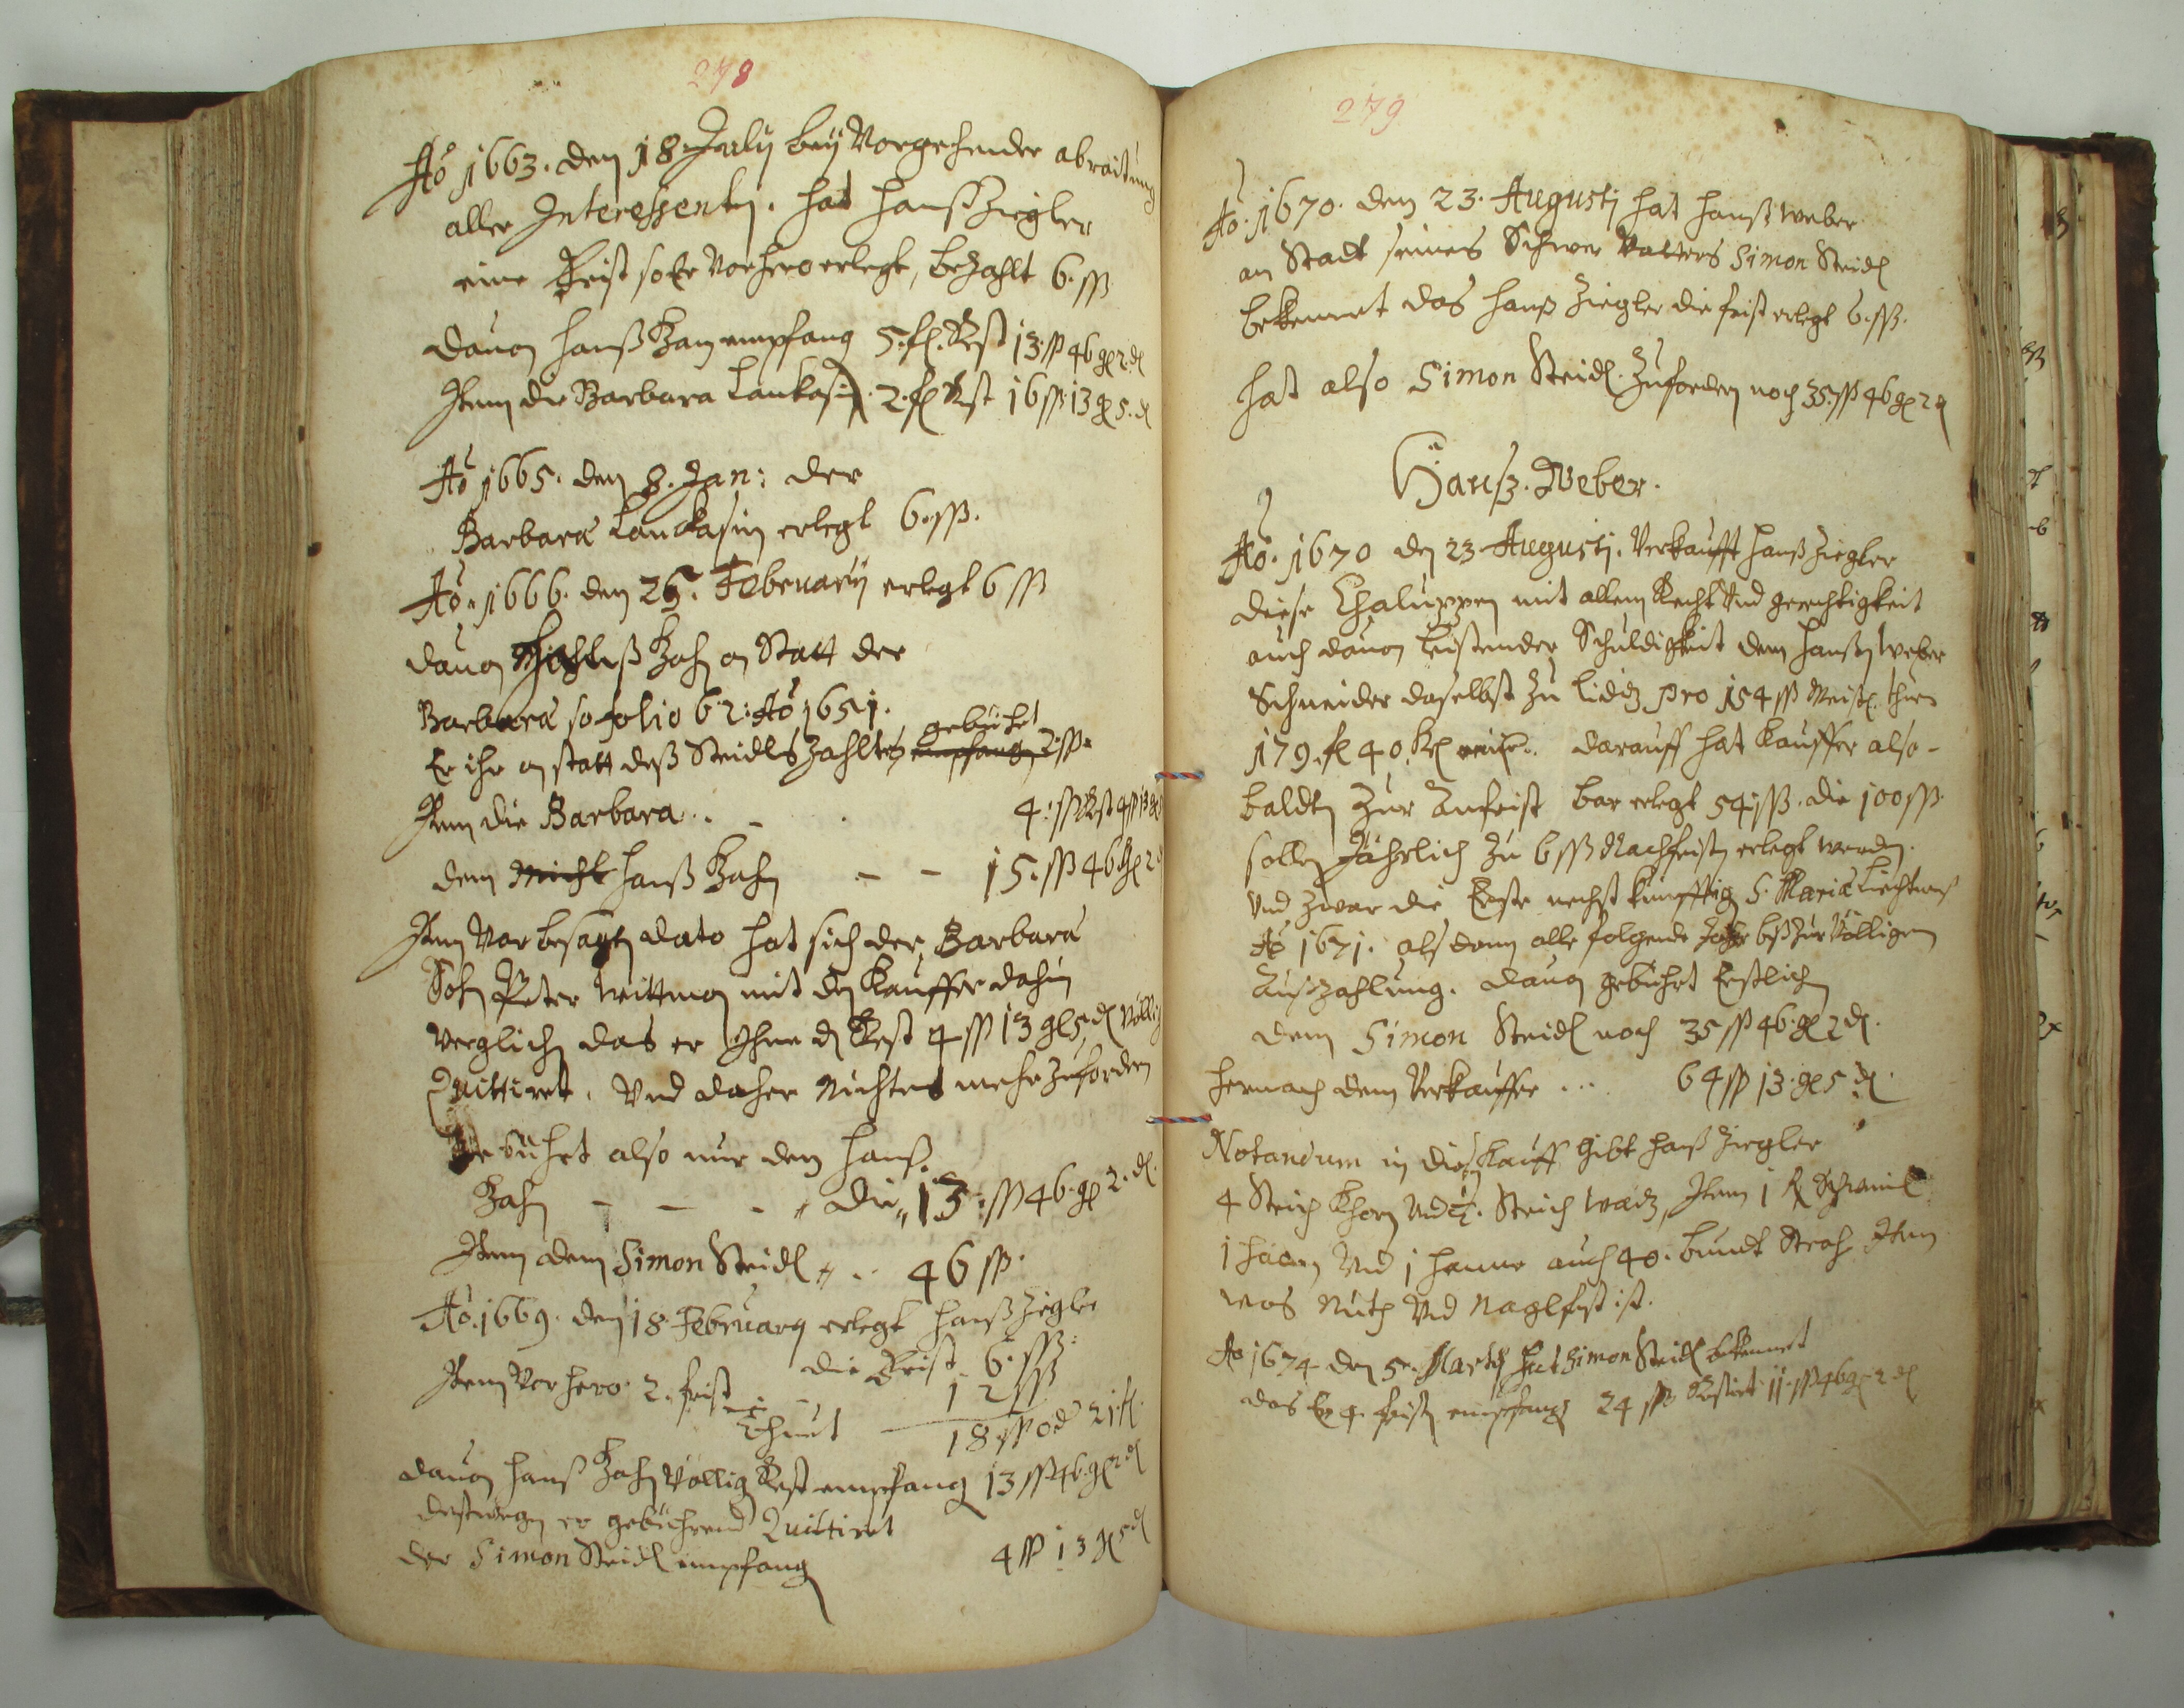 278
Aõ 1663. den 18 July beÿ Vorgehender abraitung
aller Interessentn. hat Hanß Ziegler
eine Frist so Er Vorhero erlegt, bezahlt 6. ßß
dauon Hanß Zan empfang 5. fl. Rest 13. ßß 46 gl 2 dl
Item die Barbara Lankasin 2. fl Rest 16 ßß 13 gl 5. dl
Aõ 1665. den 8. Jan: der
Barbara Lanckasin erlegt 6. ßß.
Aõ. 1666. den 26. February erlegt 6 ßß
dauon Zahn an Statt der
Barbara so folio 62: Aõ 1651.
gebührt
Er ihr an statt deß Steidls Zahlte empfang 2. ßß
Item die Barbara . . - . 4. ßß Rest 4 ßß 13 gl
dem Michl Hanß Zahn - - 15. ßß 46 gl 2 dl
Item Vor besagtn dato hat sich der Barbara
Sohn Peter Wittman mit dem Kauffer dahin
Verglichn das er Ihme dn Rest 4 ßß 13 gl 5 dl Völlig
Quittiret. Vnd daher Nichtes mehr Zufordern
Gebührt also nur dem Hanß
Zahn - - - die 13. ßß 46. gl 2. dl.
Item dem Simon Steidl . . 46 ßß.
Aõ. 1669. den 18 February erlegt Hanß Ziegler
die Frist 6. ßß.
Item Vorhero 2. frist - - 12 ßß
Thuet 18 ßß od 21. fl.
dauon Hanß Zahn Völlig Rest empfang 13 ßß 46. gl 2 dl
destwegen er gebührend Quittiret
der Simon Steidl empfang 4 ßß 13 gl 5 dl
279
Aõ. 1670. den 23. Augusti hat Hanß Weber
an Stadt seines Schwer Vatters Simon Steidl
bekennet das Hanß Ziegler die frist erlegt 6. ßß.
hat also Simon Steidl Zufordern noch 35. ßß 46 gl 2 dl
Hanß. Weber.
Aõ. 1670 den 23 Augusti. Verkaufft Hanß Ziegler
diese Chaluppen mit allem Recht Vnd gerechtigkeit
auch dauon leistender Schuldigkeit dem Hanßn Weber
Schneider daselbst zu Liditz pro 154 ßß Meißn. thuen
179. fl 40. kr. darauff hat Kauffer also-
baldtn Zur Anfrist bar erlegt 54. ßß. die 100 ßß.
solln Jährlich zu 6 ßß Nachfristn erlegt werden.
Vnd zwar die Erste nechst künfftig S. Maria Liechtmeß
Aõ 1671. alsdann alle folgende Jahr biß Zur Völligen
Außzahlung. dauon gebührt Erstlich
dem Simon Steidl noch 35 ßß 46. gl 2 dl.
hernach dem Verkauffer . . . 64 ßß 13. gl 5 dl.
Notandum in diesn Kauff gibt Hanß Ziegler
4 Strich Khorn Vnd Strich Waitz, Item 1
1 Vnd 1 Henne auch 40. bundt Stroh Item
was Nuth Vnd Naglfest ist.
Aõ 1674 den 5. Marty hat Simon Steidl bekennet
das Er 4 fristn empfang 24 ßß Restirt 11. ßß 46 gl 2 dl